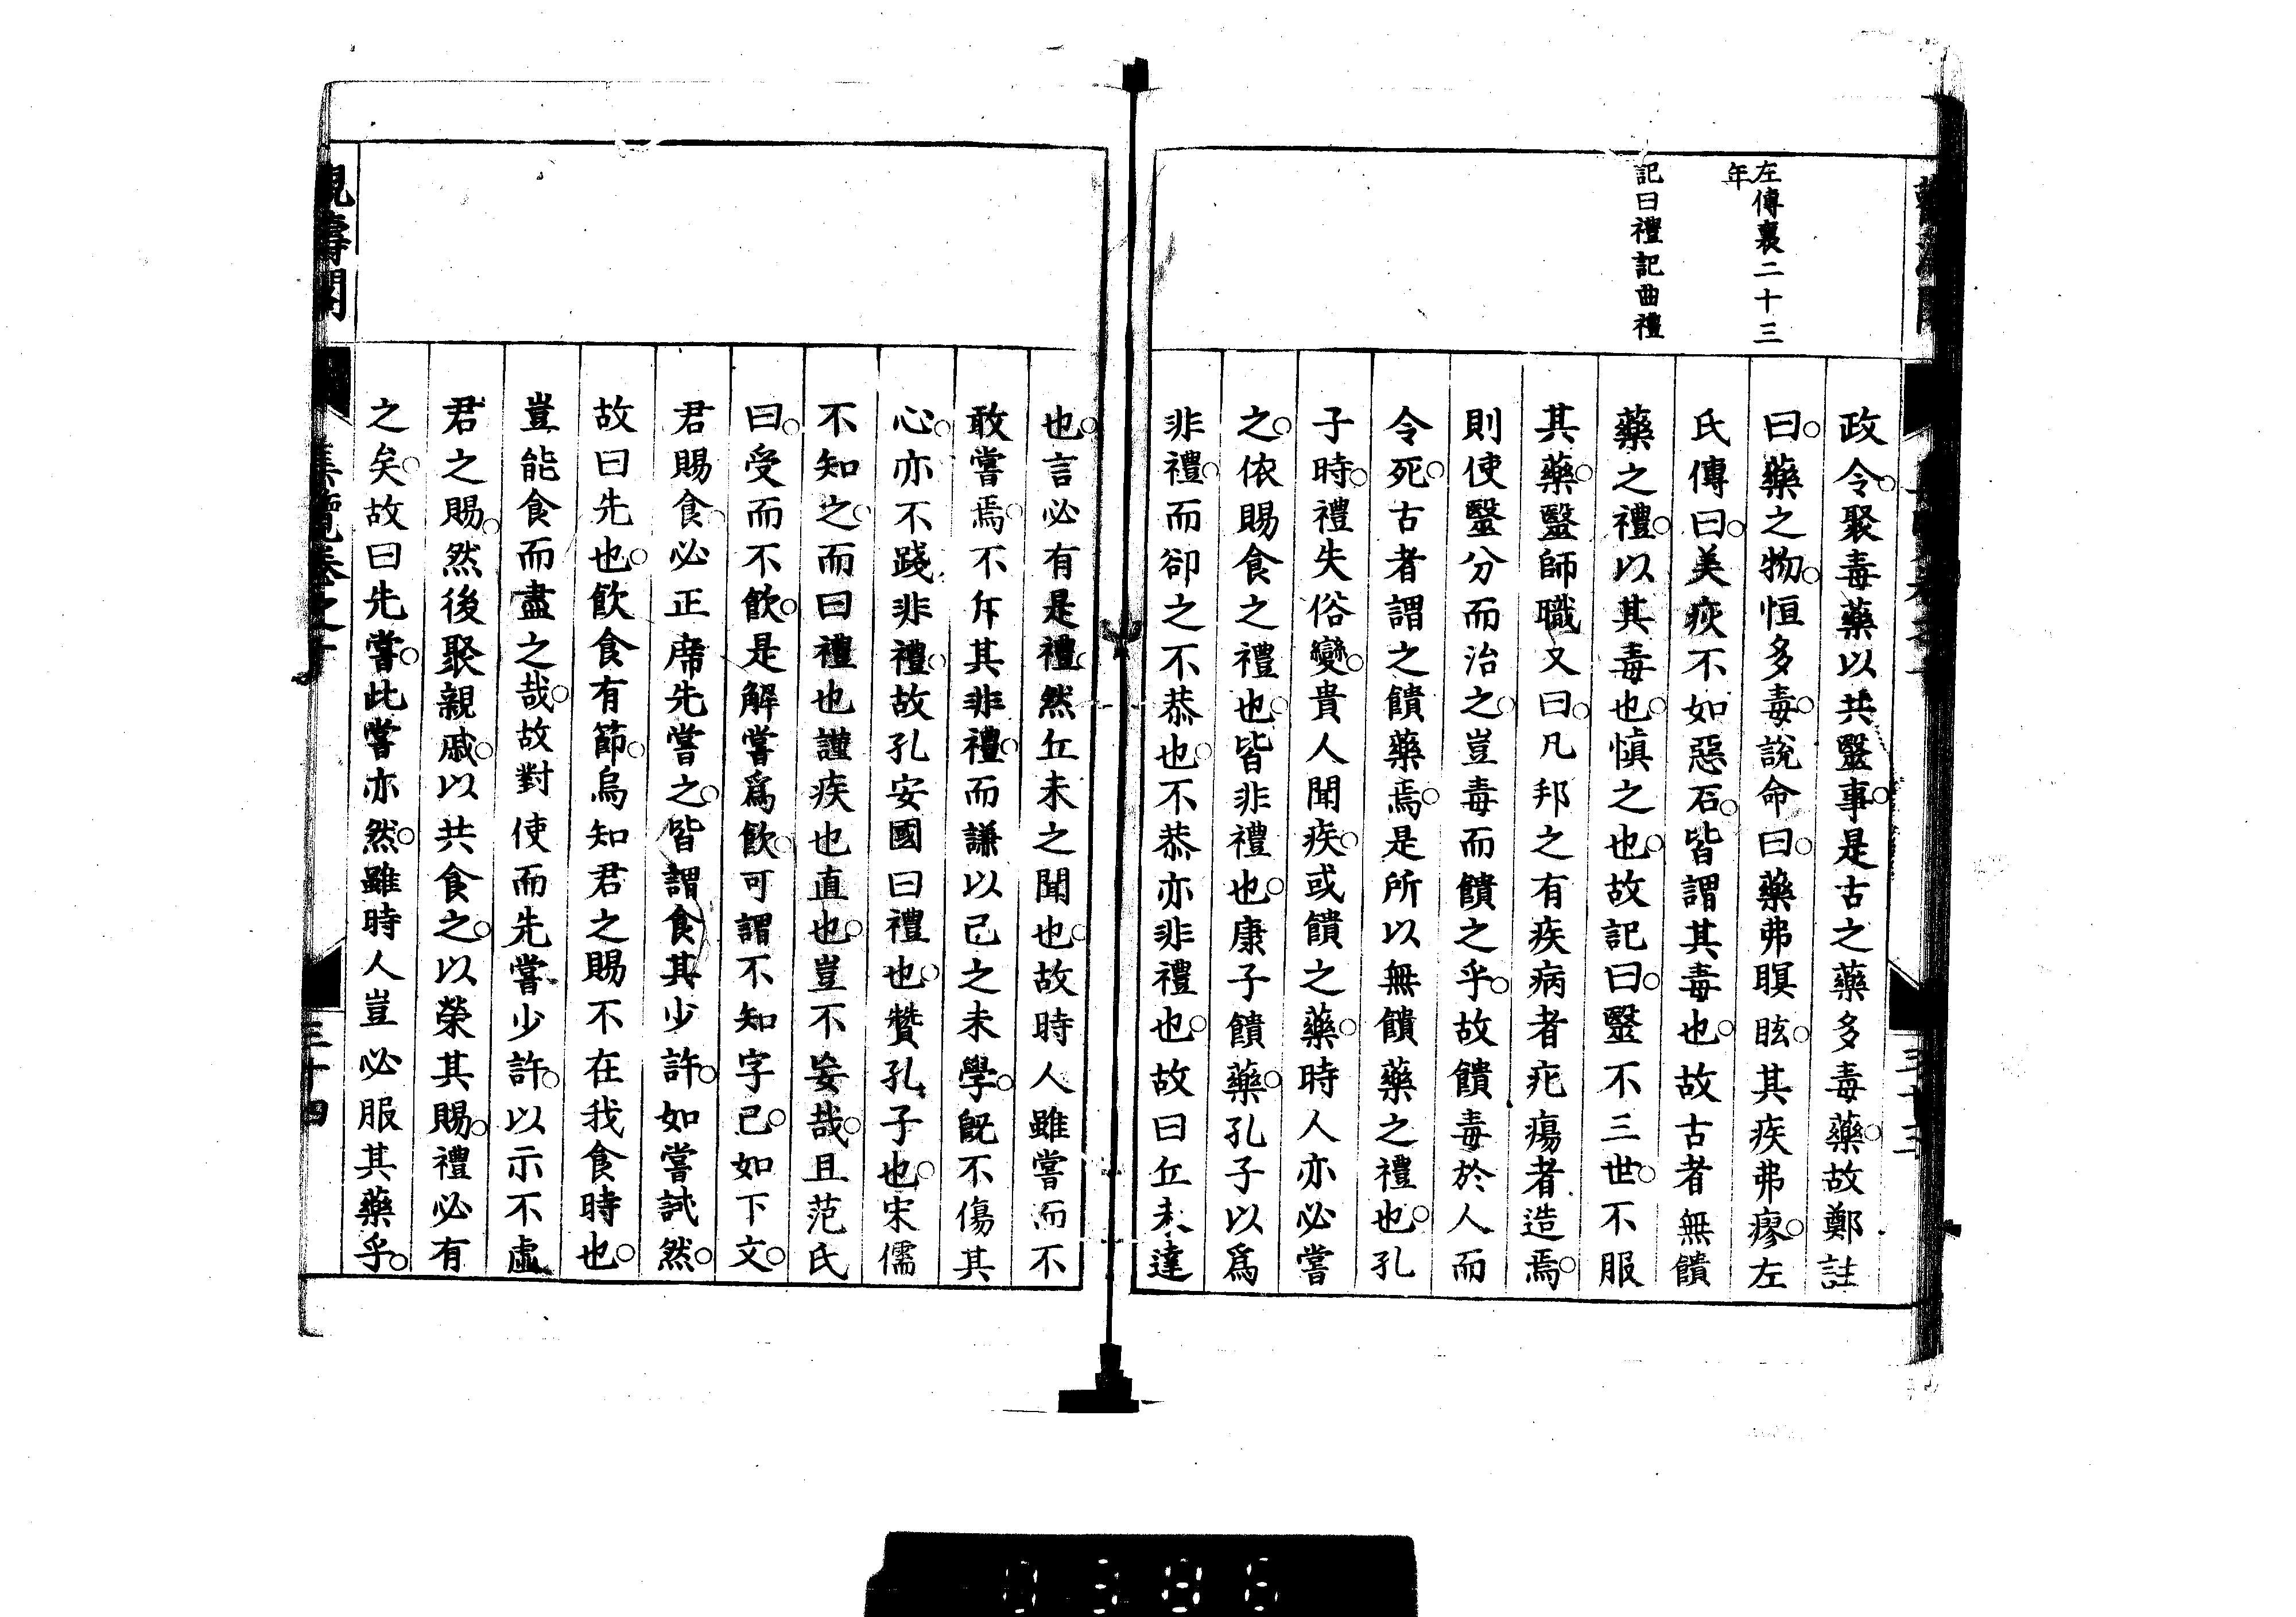 左傳襄二十三
年
記曰禮記曲禮
政令聚毒藥以共毉事是古之藥多毒藥故鄭註
曰藥之物恒多毒說命曰藥弗瞑眩其疾弗瘳左
氏傳曰美疢不如惡石皆謂其毒也故古者無饋
藥之禮以其毒也愼之也故記曰毉不三世不服
其藥毉師職又曰凡邦之有疾病者疕瘍者造焉
則使毉分而治之豈毒而饋之乎故饋毒於人而
令死古者謂之饋藥焉是所以無饋藥之禮也孔
子時禮失俗變貴人聞疾或饋之藥時人亦必嘗
之依賜食之禮也皆非禮也康子饋藥孔子以爲
非禮而卻之不恭也不恭亦非禮也故曰丘未達
三十三
也言必有是禮然丘未之聞也故時人雖嘗而不
敢嘗焉不斥其非禮而謙以己之未學旣不傷其
心亦不踐非禮故孔安國曰禮也贊孔子也宋儒
不知之而曰禮也謹疾也直也豈不妄哉且范氏
曰受而不飮是解嘗爲飮可謂不知字已如下文
君賜食必正席先嘗之皆謂食其少許如嘗試然
故曰先也飮食有節烏知君之賜不在我食時也
豈能食而盡之哉故對使而先嘗少許以示不虛
君之賜然後聚親戚以共食之以榮其賜禮必有
之矣故曰先嘗此嘗亦然雖時人豈必服其藥乎
觀濤閣
集覽卷之十
三十四
0386